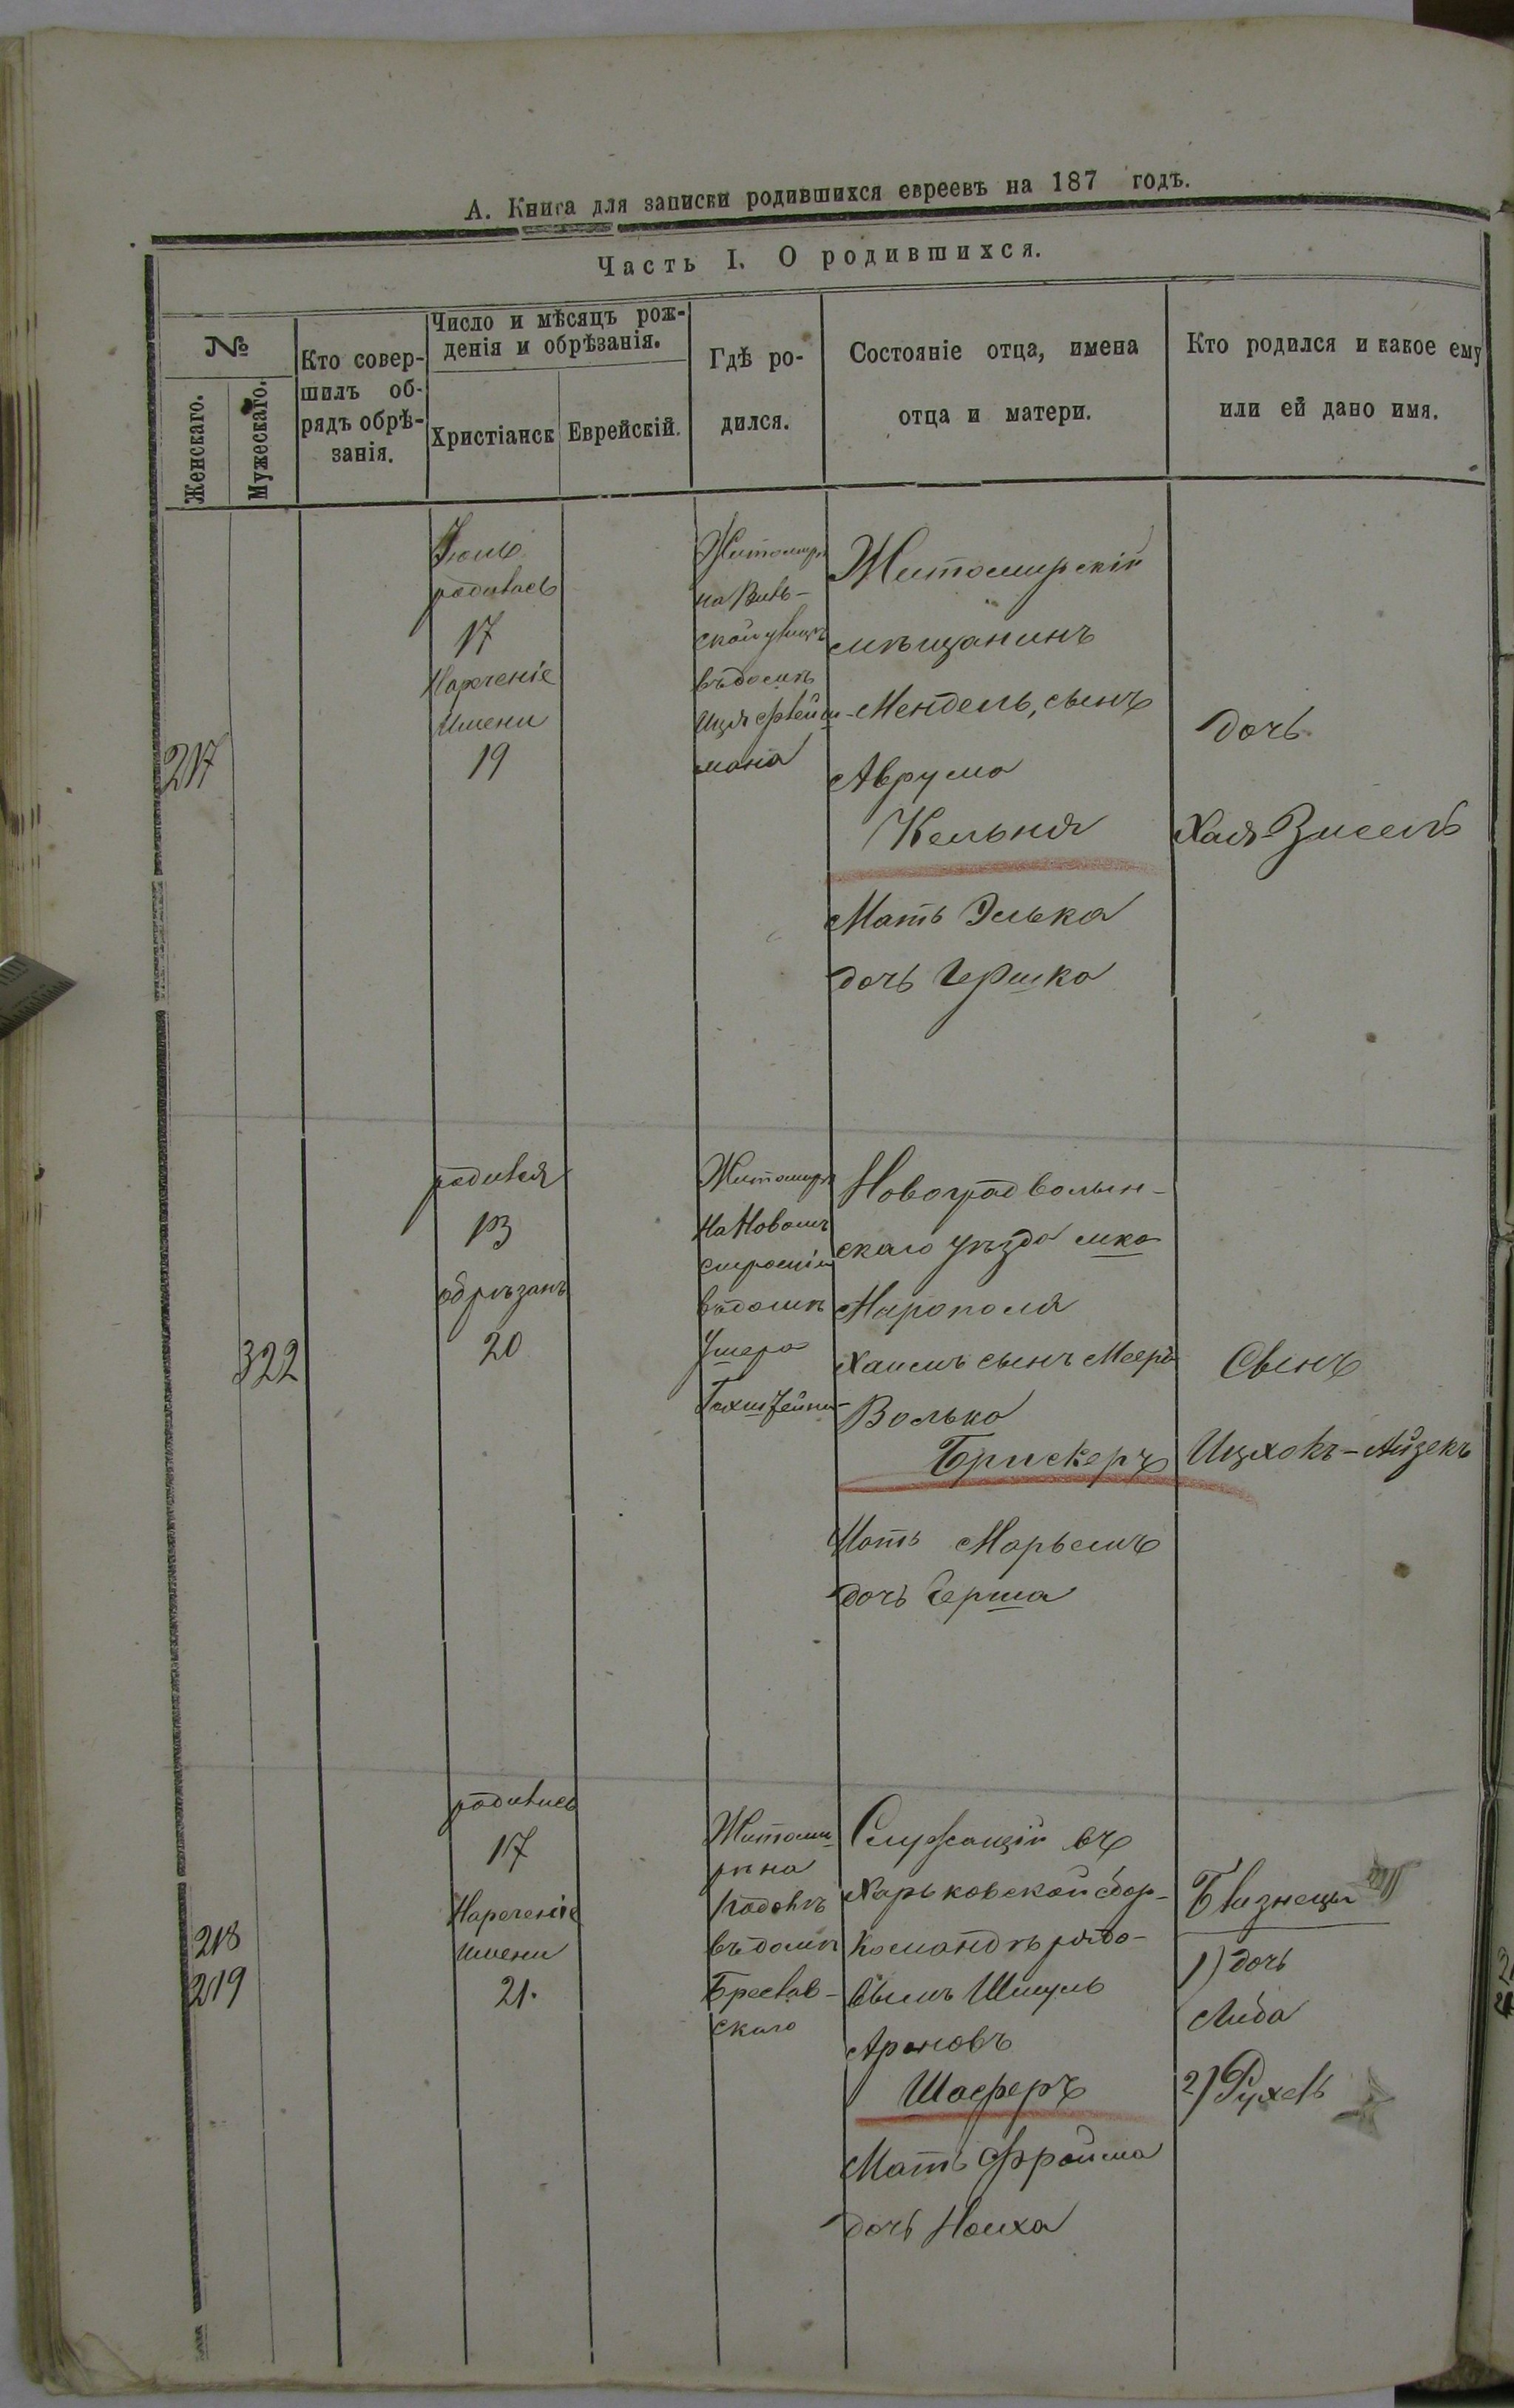 А. Книга для записки родившихся евреевъ на 187 годъ.
Часть I. О родившихся.
№
Женскаго.
Мужескаго.
Кто совер-
шилъ об-
рядъ обрѣ-
занія.
Число и мѣсяцъ рож-
денія и обрѣзанія.
Христіанск
Еврейскій.
Гдѣ ро-
дился.
Состояніе отца, имена
отца и матери.
Кто родился и какое ему
или ей дано имя.
217
родилась
17
Нареченіе
Имени
19
Житомиръ
ской улицѣ
въ домѣ
мана
Житомирскій
мѣщанинъ
Мендель, сынъ
Аврума
Кельня
Мать Элька
дочь Гершка
дочь
Хая-Зисель
322
родился
13
обрѣзанъ
20
Житомиръ
На Новомъ
строеніи
въ домѣ
Ушера
Новоградволын-
скаго уѣзда мка
Мирополя
Хаимъ сынъ Меера
Волько
Брискеръ
Мать Марьемъ
дочь Герша
Сынъ
Ицхокъ-Айзекъ
218
219
родились
17
Нареченіе
имени
21.
Житоми-
рѣ на
въ домѣ
Бреслав-
скаго
Служащій въ
Харьковской
Командѣ рядо-
вымъ Шмуль
Ароновъ
Шаферъ
Мать Фройма
дочь Ноиха
Близнецы
1) дочь
Либа
2) Рухель